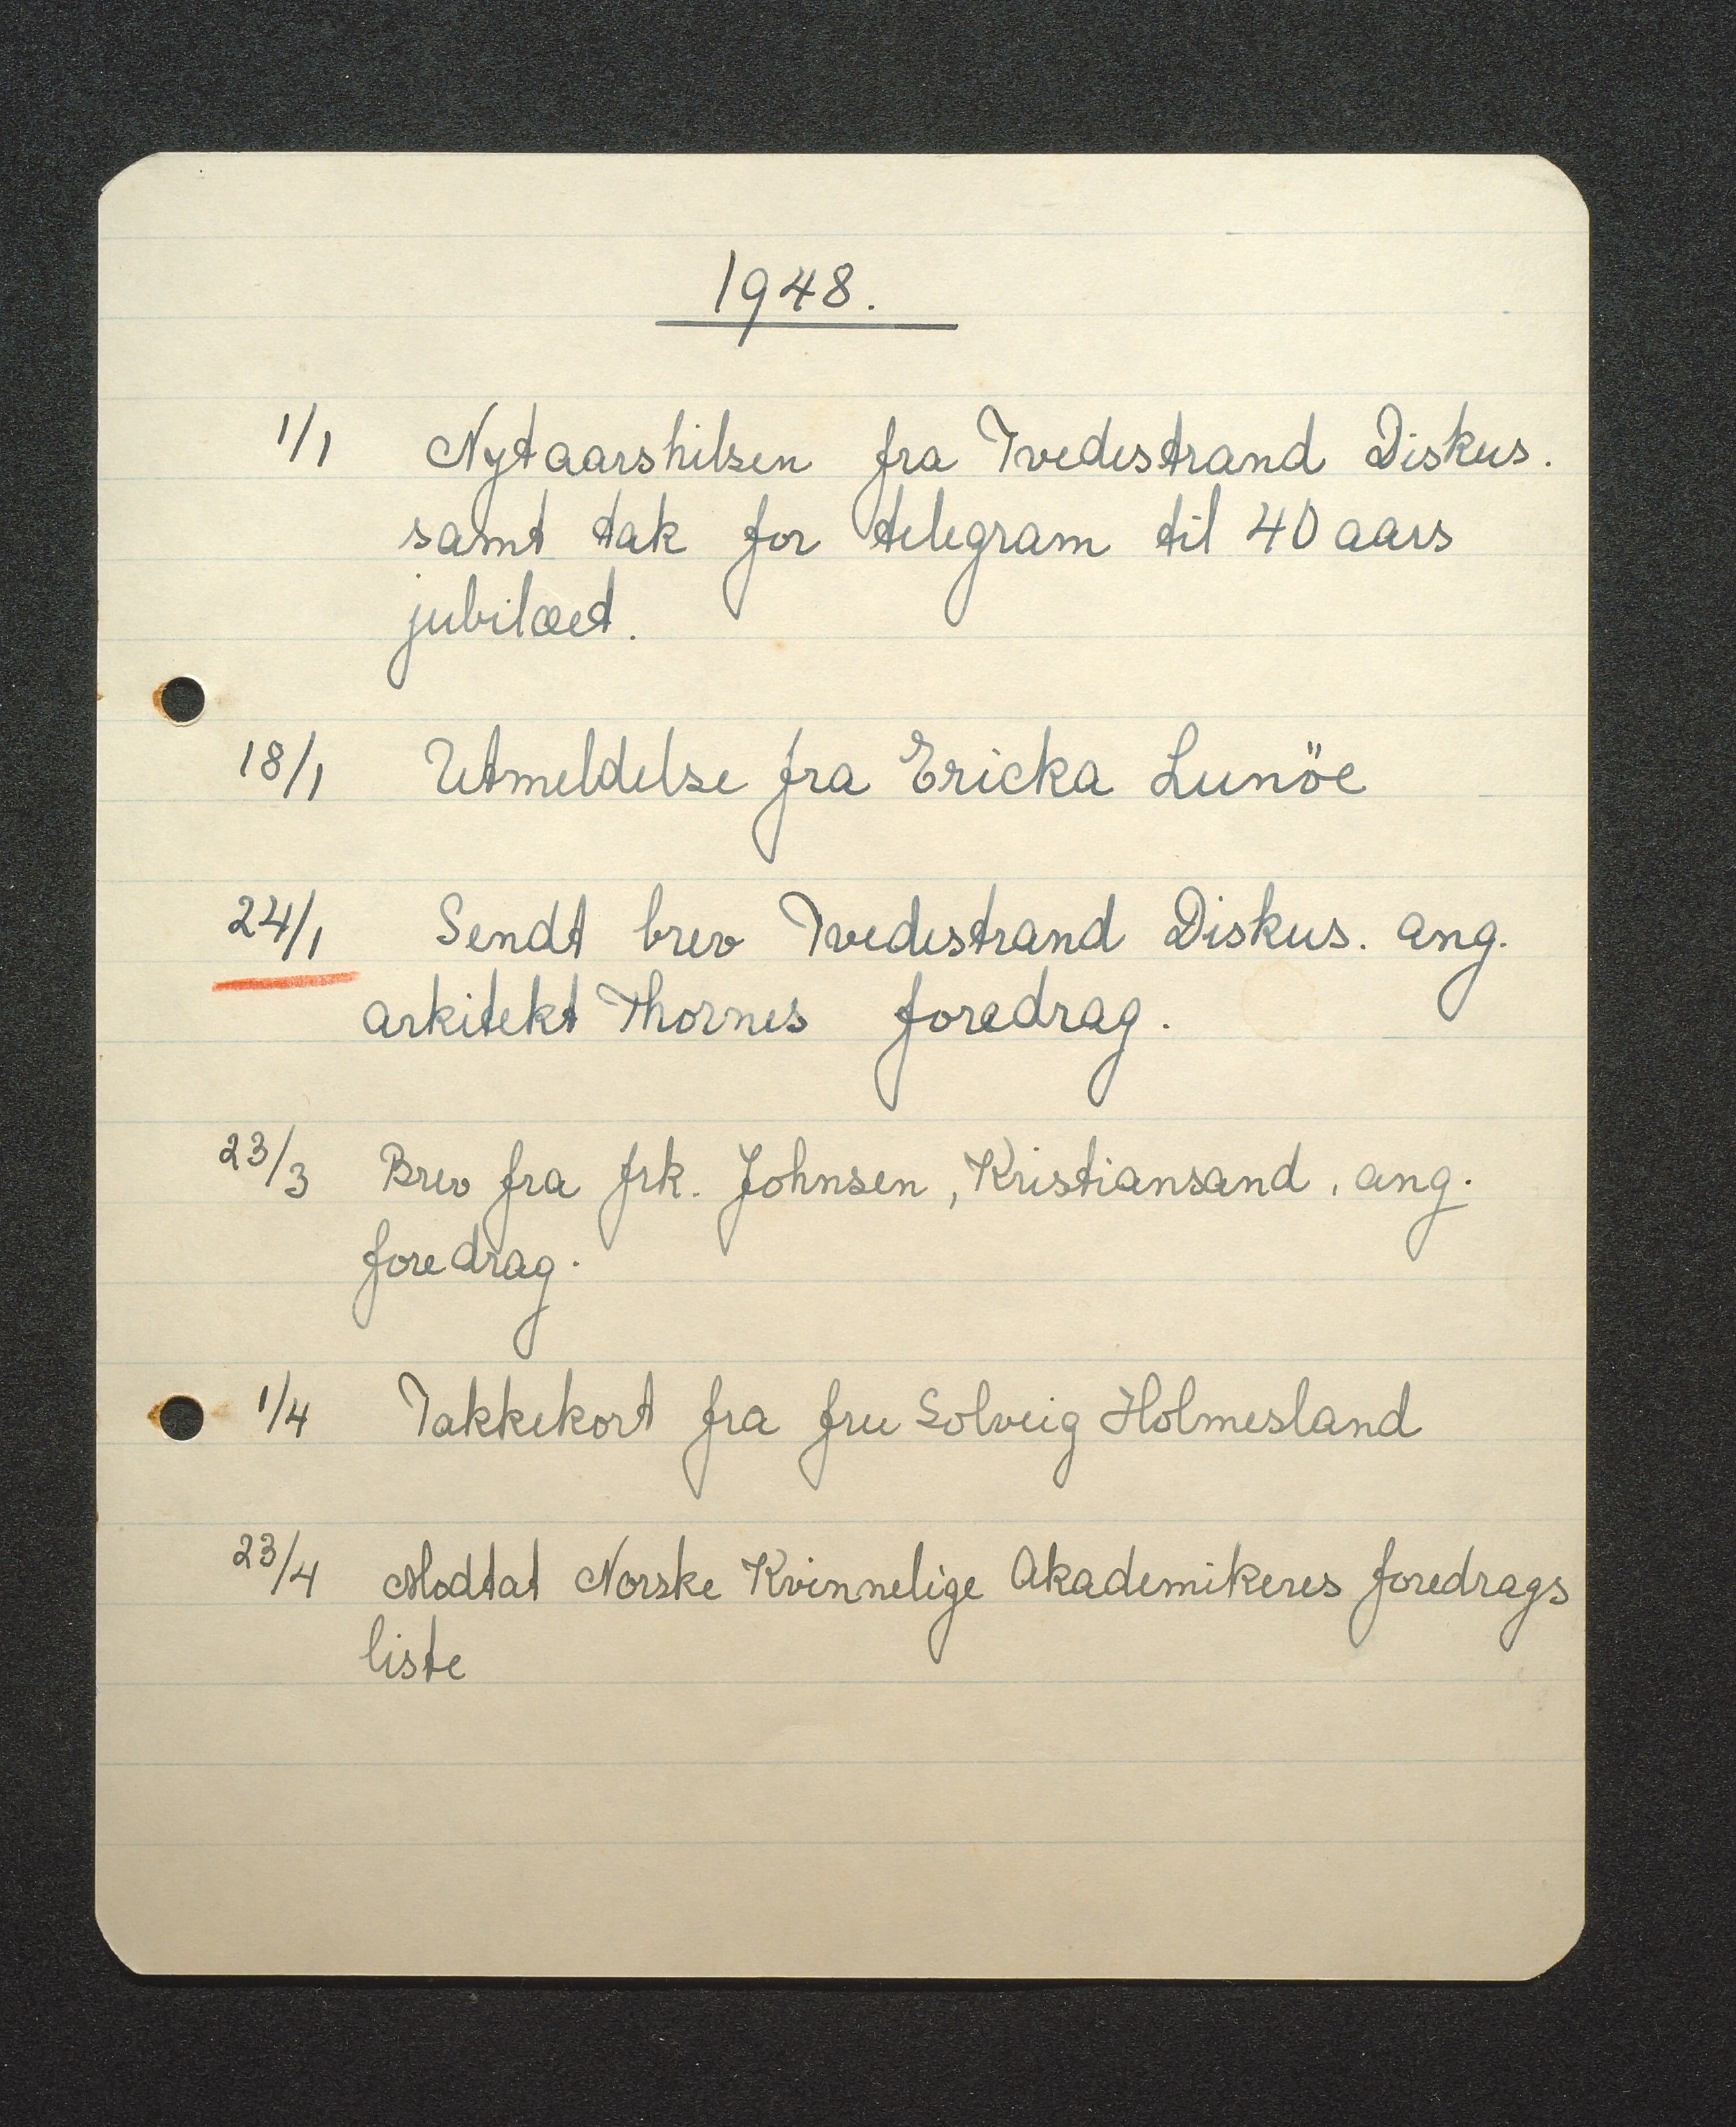 1948.
1/1 Nytaarshilsen fra Tvedestrand Diskus.
samt tak for telegram til 40 aars
jubilæet.
18/1 Utmeldelse fra Ericka Lunöe
24/1 Sendt brev Tvedestrand Diskus. ang.
arkitekt Thornes foredrag.
23/3 Brev fra frk. Johnsen, Kristiansand, ang.
foredrag.
1/4 Takkekort fra fru Solveig Holmesland
23/4 Modtat Norske Kvinnelige Akademikeres foredrags
liste